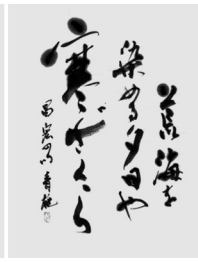 荒海を
染める夕日や
寒ざくら